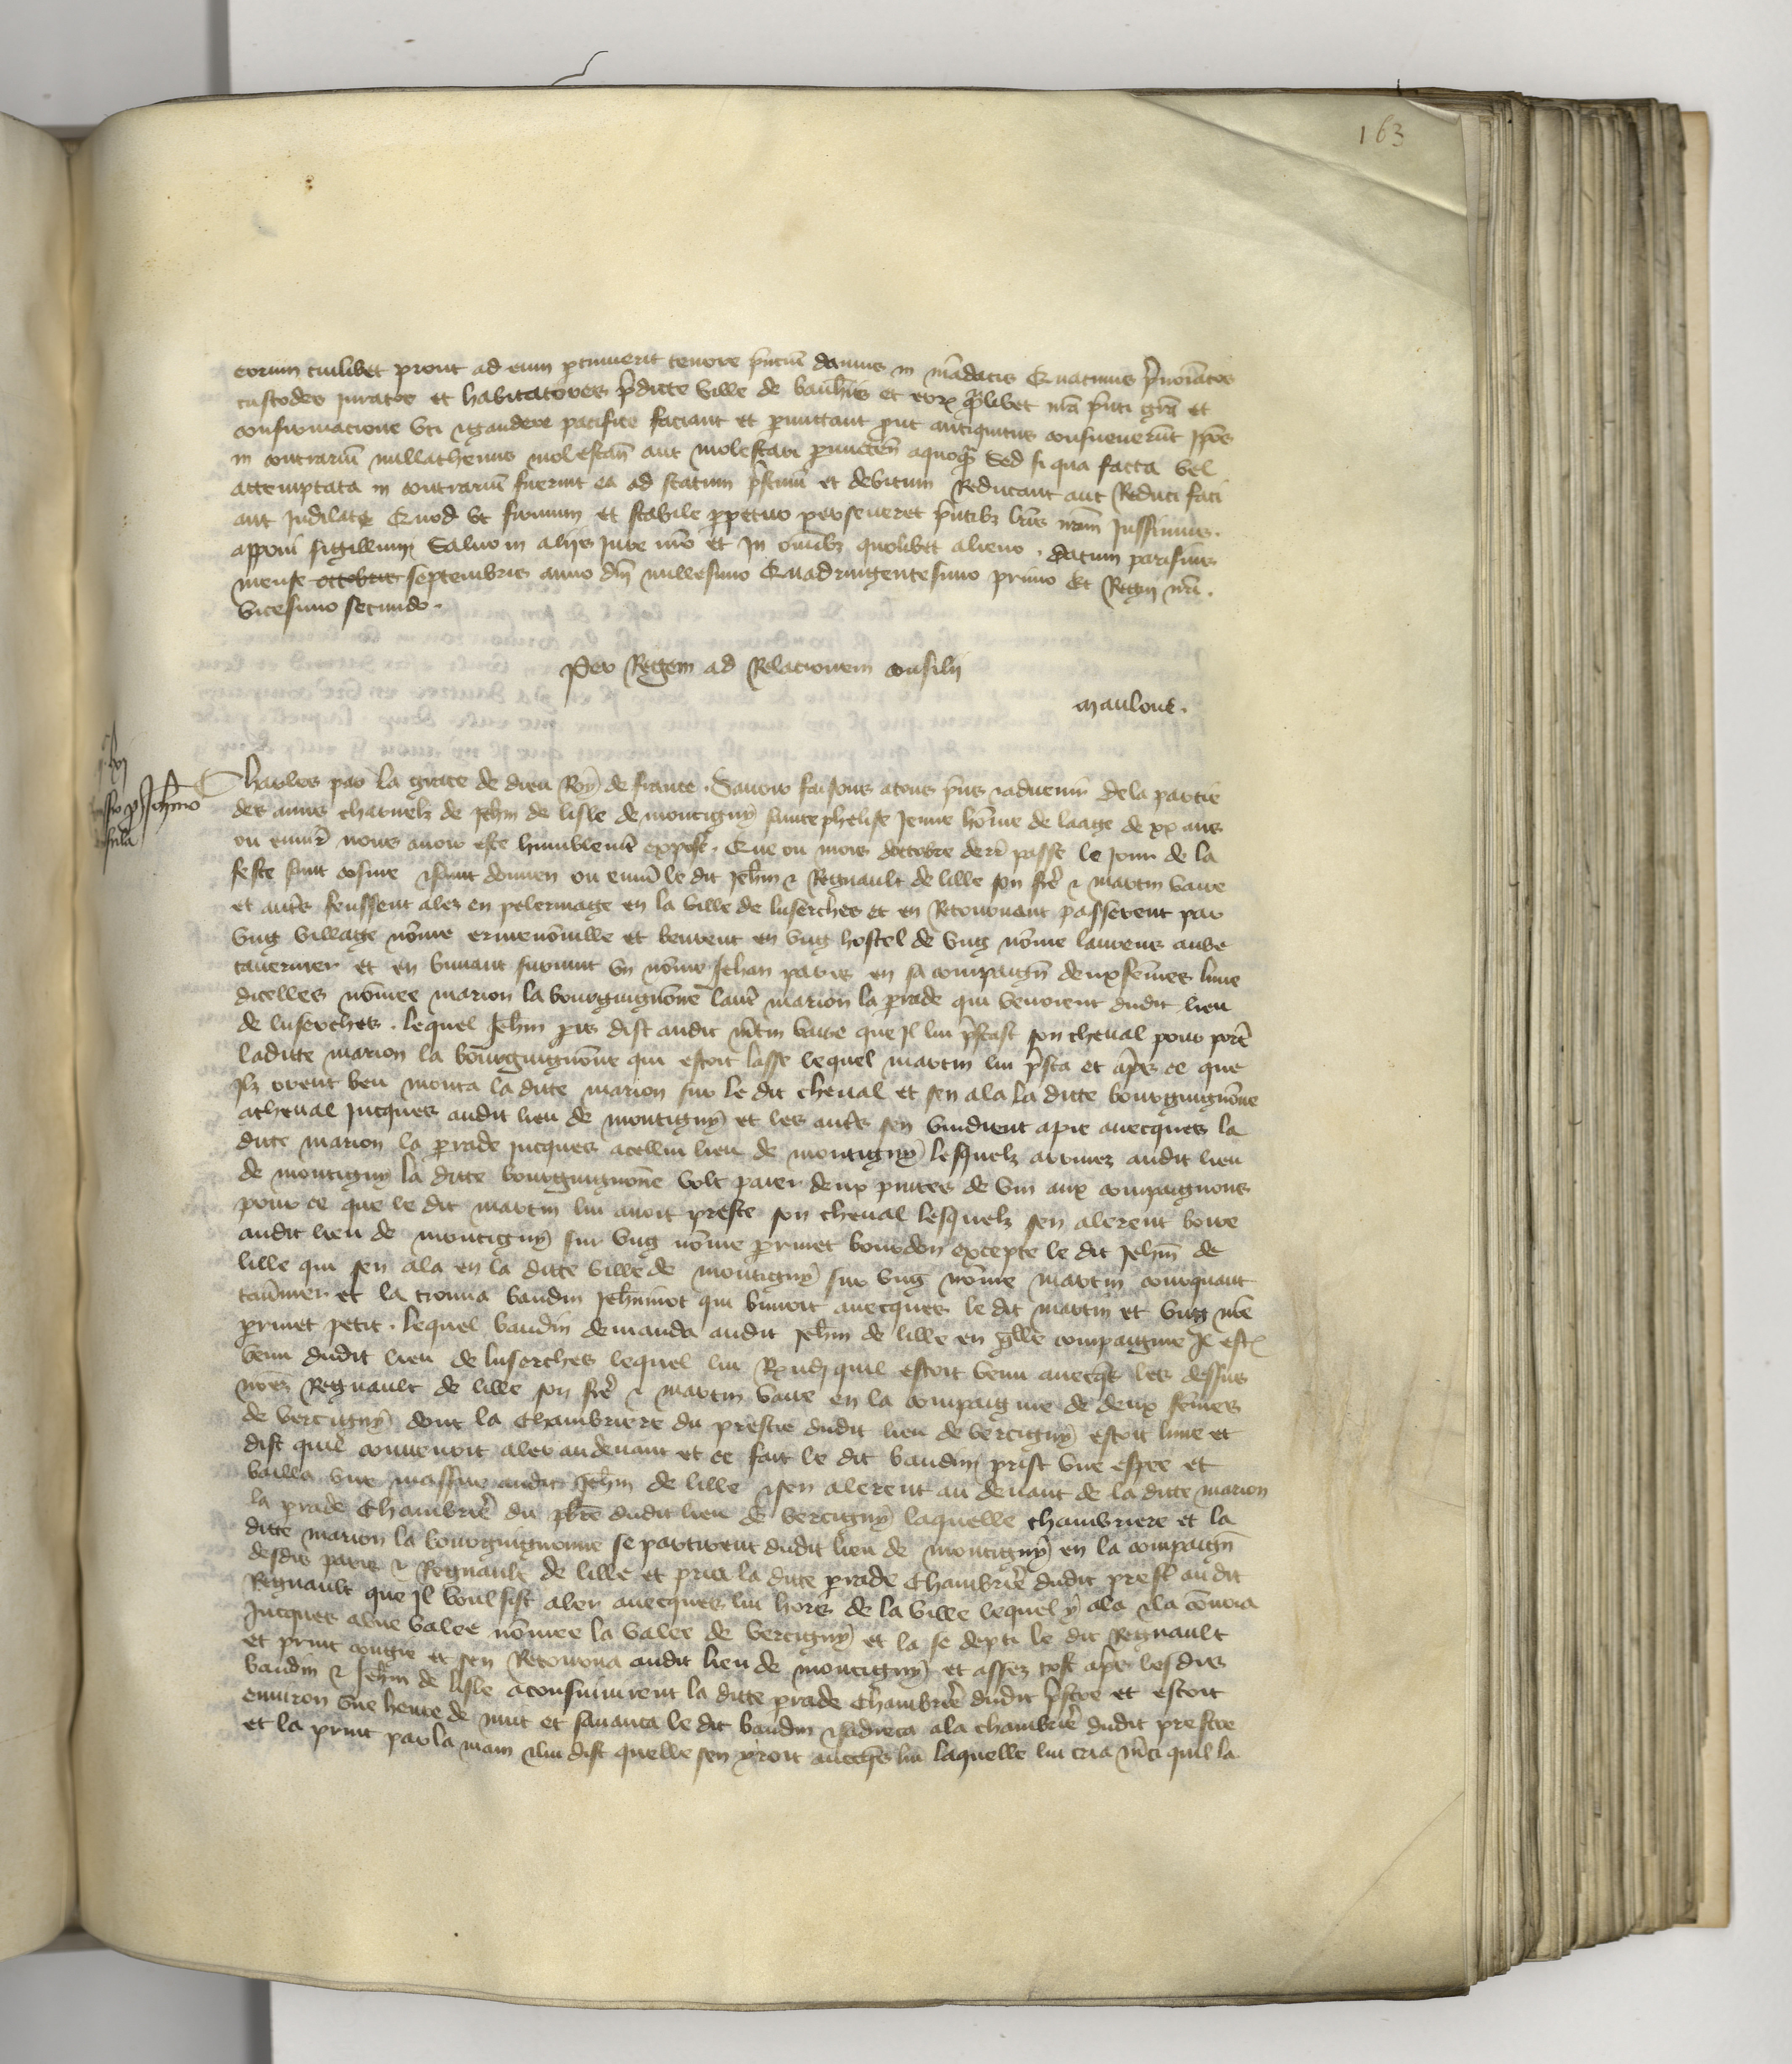 163
eorum cuilibet prout ad eum ptinuerit tenore pncium damus in mādatis Quatinus pnoīatos
custodes iuratos et habitatores pdicte ville de et eorum qmlibet nrā pnti grā et
confirmacione vti & gaudere pacifice faciant et pmittant put antiquitus consueuerūt Ipōs
in contrariū nullathenus molestañ aut molestari pmitteñ a quoqm Sed si qua facta vel
attemptata in contrariū fuerint ea ad statum pstinū et debitum Reducant aut Reduci faci
ant Indilate Quod vt firmum et stabile ppetuo perseueret pntibz lris nrm Iussimus
apponi sigillum Saluo in alijs Iure nrō et In omibz quolibet alieno . datum parisius
mense octobris septembris anno dnj millesimo Quadringentesimo primo Et Regni nrī .
vicesimo secundo .
Per Regem ad Relacionem consilij
Maulout .
Charles par la grace de dieu Roy de france . Sauoir faisons a tous pns & aduenir de la partie
des amis charnelz de Jehin de lisle de montigny sainte phelise Jenne hōme de laage de xx ans
ou enuirō nous auoir este humblemt expose . Que ou mois doctobre derr passe le jour de la
feste saint cosme & saint damien ou enuirō le dit Jehin & Regnault de lille son frē & martin vaire
et autrs feussent alez en pelerinage en la ville de luserches et en Retournant passerent par
vng village nōme ermenonuille et beurent en vng hostel de vng nōme laurens aube
tauernier et en buuant suruint vn nōme Jehan paris en sa compaigñ deux femes lune
dicelles nōmee marion la bourguignōne lautr marion la prade qui venoient dudit lieu
de luserches . lequel Jehin pis dist audit mtin vaire que Il lui pstast son cheual pour portr
ladicte marion la bourguignōne qui estoit lasse lequel martin lui psta et aprs ce que
Ilz orent beu monta la dicte marion sur le dit cheual et sen ala la dicte bourguignōne
acheual Jucques audit lieu de montigny et les autrs sen vindrent apie auecques la
dicte marion la prade jucques acellui lieu de montigny lesquelz arriuez audit lieu
de montigny la dicte bourguignōne volt paier deux pintes de vin aux compaignons
pour ce que le dit martin lui auoit preste son cheual lesquelz sen alerent boire
audit lieu de montigny sur vng nōme prinet bourdon excepte le dit Jehin de
lille qui sen ala en la dicte ville de montigny sur vng nōme martin courquant
taūnier et la trouua baudin Jehinnot qui buuoit auecques le dit martin et vng nōe
prinet petit . lequel baudin demanda audit Jehin de lille en qlle compaignie Il est
venu dudit lieu de luserches lequel lui Rndj quil estoit venu auecqs les dessus
nōez Regnault de lille son frē & martin vaire en la compaignie de deux femes
de versigny dont la chambriere du prestre dudit lieu de versigny estoit lune et
dist quil conuenoit aler audeuant et ce fait le dit baudin prist vne espee et
bailla vne massue audit Jehin de lille & sen alerent au deuant de la dicte marion
la prade chambrirē du pbrē dudit lieu de versigny laquelle chambriere et la
dicte marion la bourguignonne se partirent dudit lieu de montigny en la compaigñ
desdis paris & Regnault de lille et pria la dicte prade chambrirē dudit prest audit
Regnault que Il voulsist aler auecques lui hors de la ville lequel y ala & la cōuoia
Jucques a vne valee nōmee la valee de versigny et la se depti le dit Regnault
et print congie et sen Retourna audit lieu de montigny et assez tost aprs lesdis
baudin & Jehin de lisle aconsuiuirent la dicte prade chambrirē dudit pstre et estoit
enuiron vne heure de nuit et sauanca le dit baudin & sadreca ala chambrirē dudit prestre
et la print par la main & lui dist quelle sen yroit auecqs lui laquelle lui cria mci quil la